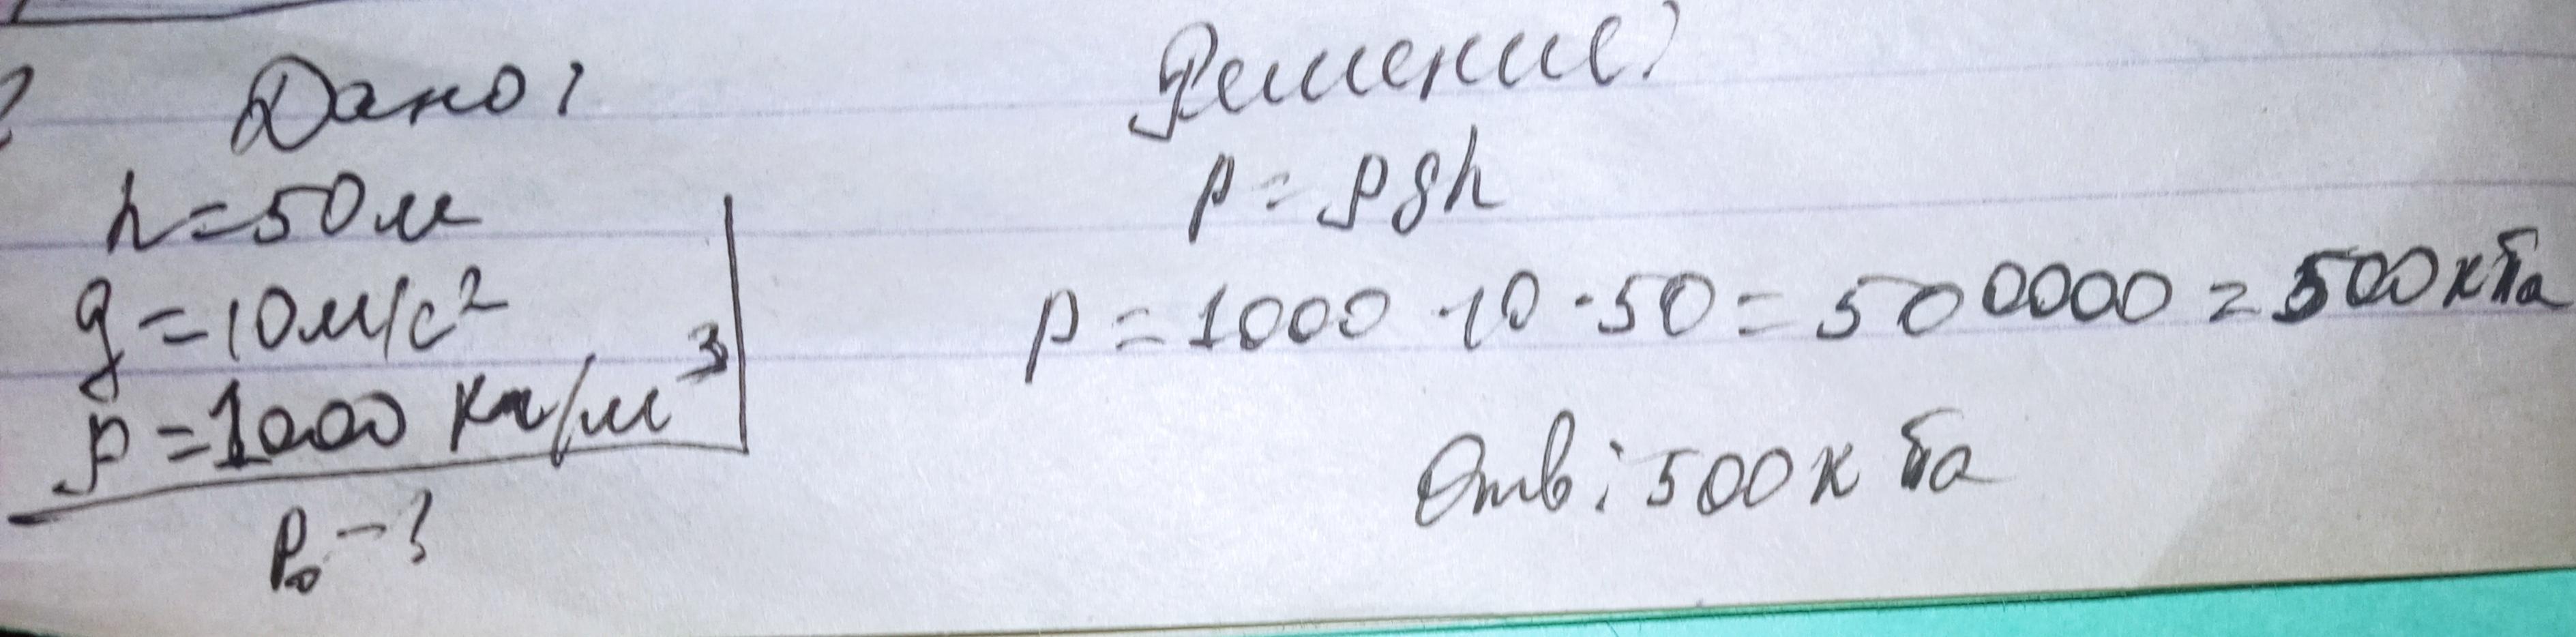 Дано:
h=50м
g=10м/с²
ρ=1000 кг/м³
P₀-?
Решение:
p=ρgh
p=1000·10·50=500000=500кПа
Отв:500кПа